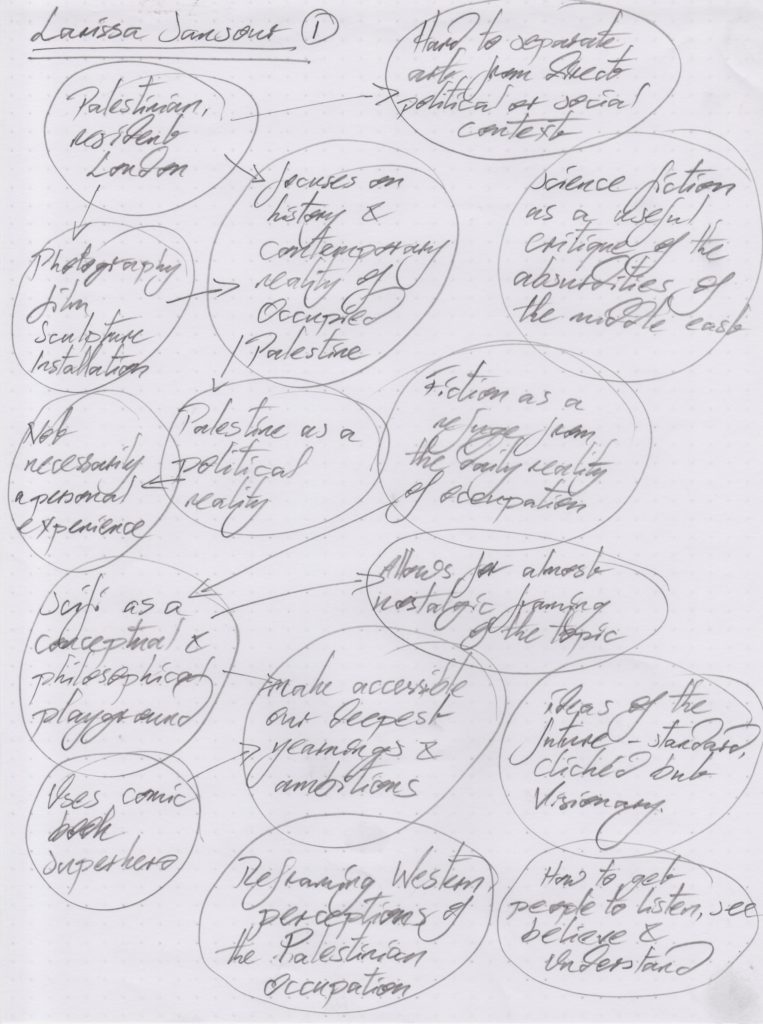 Larissa Sansour 1
Palestinian,
resident
London
Hard to separate
art from direct
political or social
context
focuses on
history &
contemporary
reality of
Occupied
Palestine
Science fiction
as a useful
critique of the
absurdities of
the middle east
Photography
film
sculpture
Installation
Not
necessarily
a personal
experience
Palestine as a
political
reality
Fiction as a
refuge from
the daily reality
of occupation
Scifi as a
conceptual &
philosophical
playground
Allows for almost
nostalgic framing
of the topic
make accessible
our deepest
yearnings &
ambitions
ideas of the
future - standard,
clichéd but
visionary.
Uses comic
book
superhero
Reframing Western
perceptions of
the Palestinian
Occupation
How to get
people to listen, see
believe &
understand